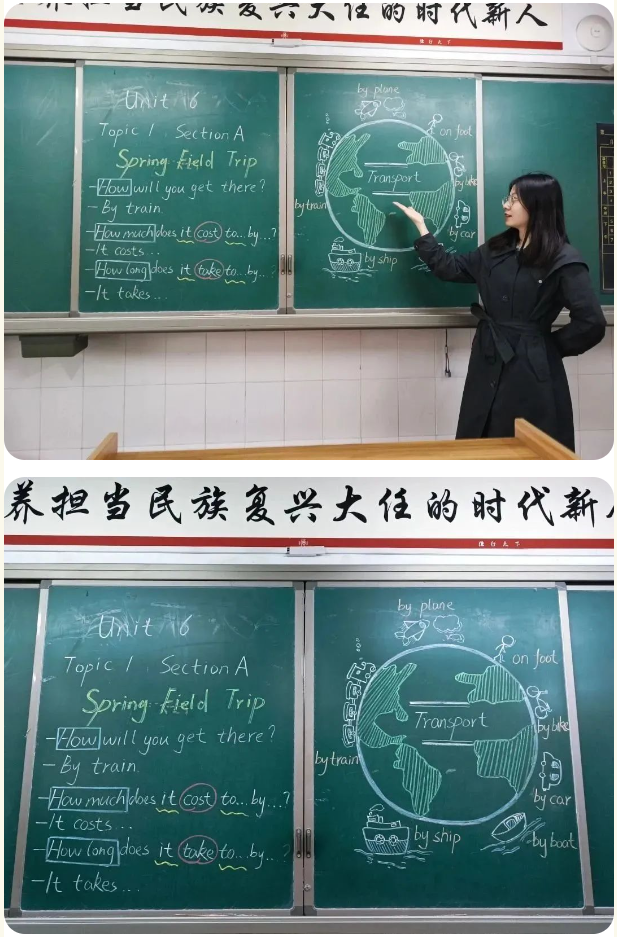 养担当民族复兴大任的时代新人
Unit 6
Topic 1 Section A
Spring Field Trip
-How will you get there?
-By train.
-How much does it cost to...by...?
-It costs...
-How long does it take to...by...?
-It takes...
by plane
on foot
Transport
by bike
by train
by car
by ship
养担当民族复兴大任的时代新
Unit 6
Topic 1 Section A
Spring Field Trip
-How will you get there?
-By train.
-How much does it cost to...by...?
-It costs...
-How long does it take to...by...?
-It takes...
by plane
on foot
Transport
by bike
by train
by car
by ship
by boat